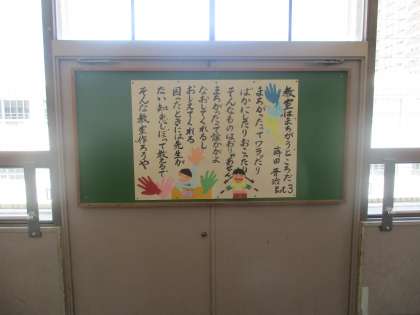 教室はまちがうところだ
蒔田晋治 No.3
まちがったってワラったり
ばかにしたりおこったり
そんなものはおりゃあせん
まちがったって誰かがよ
なおしてくれるし
おしえてくれる
困ったときには先生が
ない知恵しぼって教えるで
そんな教室作ろうや